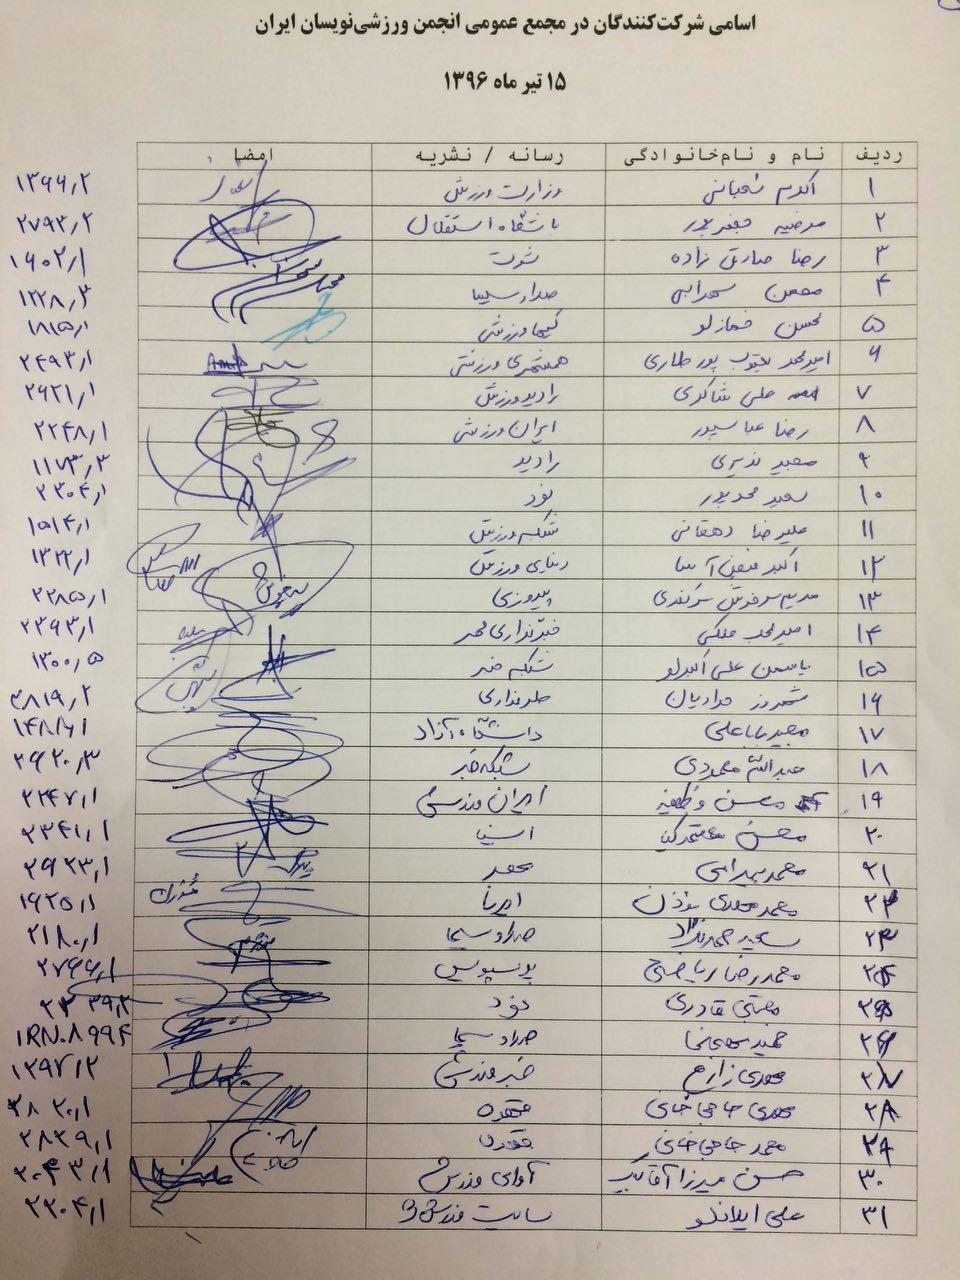 اسامی شرکت‌کنندگان در مجمع عمومی انجمن ورزشی‌نویسان ایران
۱۵ تیر ماه ۱۳۹۶
ردیف نام و نام‌خانوادگی رسانه / نشریه امضا
۱ اکرم شعبانی وزارت ورزش ۱۳۶۶٫۲
۲ مرضیه جعفرپور باشگاه استقلال ۲۷۹۳٫۲
۳ رضا صادق زاده شوت ۱۶۰۲٫۱
۴ بهمن سهرابی صدا و سیما ۱۲۲۸٫۳
۵ محسن کیهان ورزشی ۱۸۱۵٫۱
۶ امیرمحمد یعقوب پور طاری همشهری ورزشی ۲۴۹۳٫۱
۷ علی شاکری رادیو ورزش ۲۶۲۱٫۱
۸ رضا عباسپور ایران ورزشی ۲۲۴۸٫۱
۹ سعید نذیری رادیو ۱۱۷۳٫۳
۱۰ سعید محمدپور نود ۲۳۰۴٫۱
۱۱ علیرضا دهقانی شبکه ورزش ۱۵۱۴٫۱
۱۲ اکبر دنیای ورزش ۱۳۲۲٫۱
۱۳ مریم سرخوش پیروزی ۲۲۸۵٫۱
۱۴ امیرمحمد ملکی خبرگزاری مهر ۲۳۹۳٫۱
۱۵ یاسمن علی اکبرلو شبکه خبر ۱۳۰۰٫۵
۱۶ شهروز مرادیان خبرگزاری ۲۸۱۹٫۲
۱۷ مجید باباعلی دانشگاه آزاد
۱۸ عبدالله محمودی شبکه خبر ۲۶۲۰٫۳
۱۹ محسن وظیفه ایران ورزشی ۲۲۴۷٫۱
۲۰ محسن معتمدکیا ایسنا ۲۳۴۱٫۱
۲۱ محمد بهرامی ۲۹۲۳٫۱
۲۲ محمدمهدی موذن ایرنا ۱۹۲۵٫۱
۲۳ سعید محمدنژاد صدا و سیما ۲۱۸۰٫۱
۲۴ محمدرضا ریاضی پرسپولیس ۲۷۶۶٫۱
۲۵ مجتبی قادری نود ۲۳۳۹٫۲
۲۶ حمید صدا و سیما IRN۰۸۹۹۴
۲۷ مهدی زارع خبر ورزشی ۱۲۹۷٫۲
۲۸ مهدی حاجی خانی
۲۹ محمد حاجی خانی ۲۸۲۹٫۱
۳۰ حسن میرزا آقابیک آوای ورزش ۲۰۴۳٫۱
۳۱ علی ایلانلو سایت ورزش 3 ۲۲۰۴٫۱